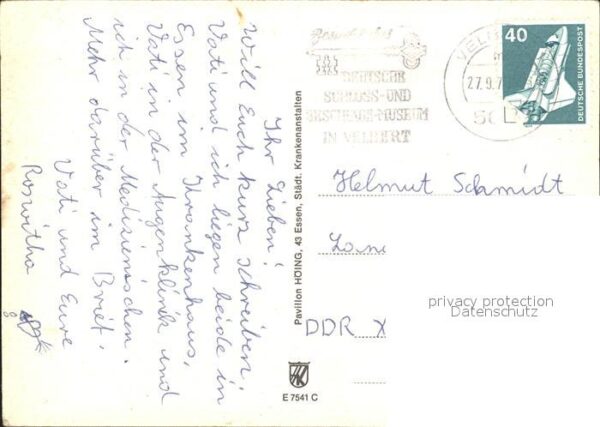 Ihr Lieben!
Will Euch kurz schreiben,
Vati und ich liegen beide in
Essen im Krankenhaus,
Vati in der Augenklinik und
ich in der Medizinischen.
Mehr darüber im Brief!
Vati und Eure
Roswitha
Pavillon HÖING, 43 Essen, Städt. Krankenanstalten
E 7541 C
DEUTSCHE
SCHLOSS-UND
BESCHLÄGE-MUSEUM
IN VELBERT
VELB
27.9.7
40
DEUTSCHE BUNDESPOST
Helmut Schmidt
DDR X
privacy protection
Datenschutz